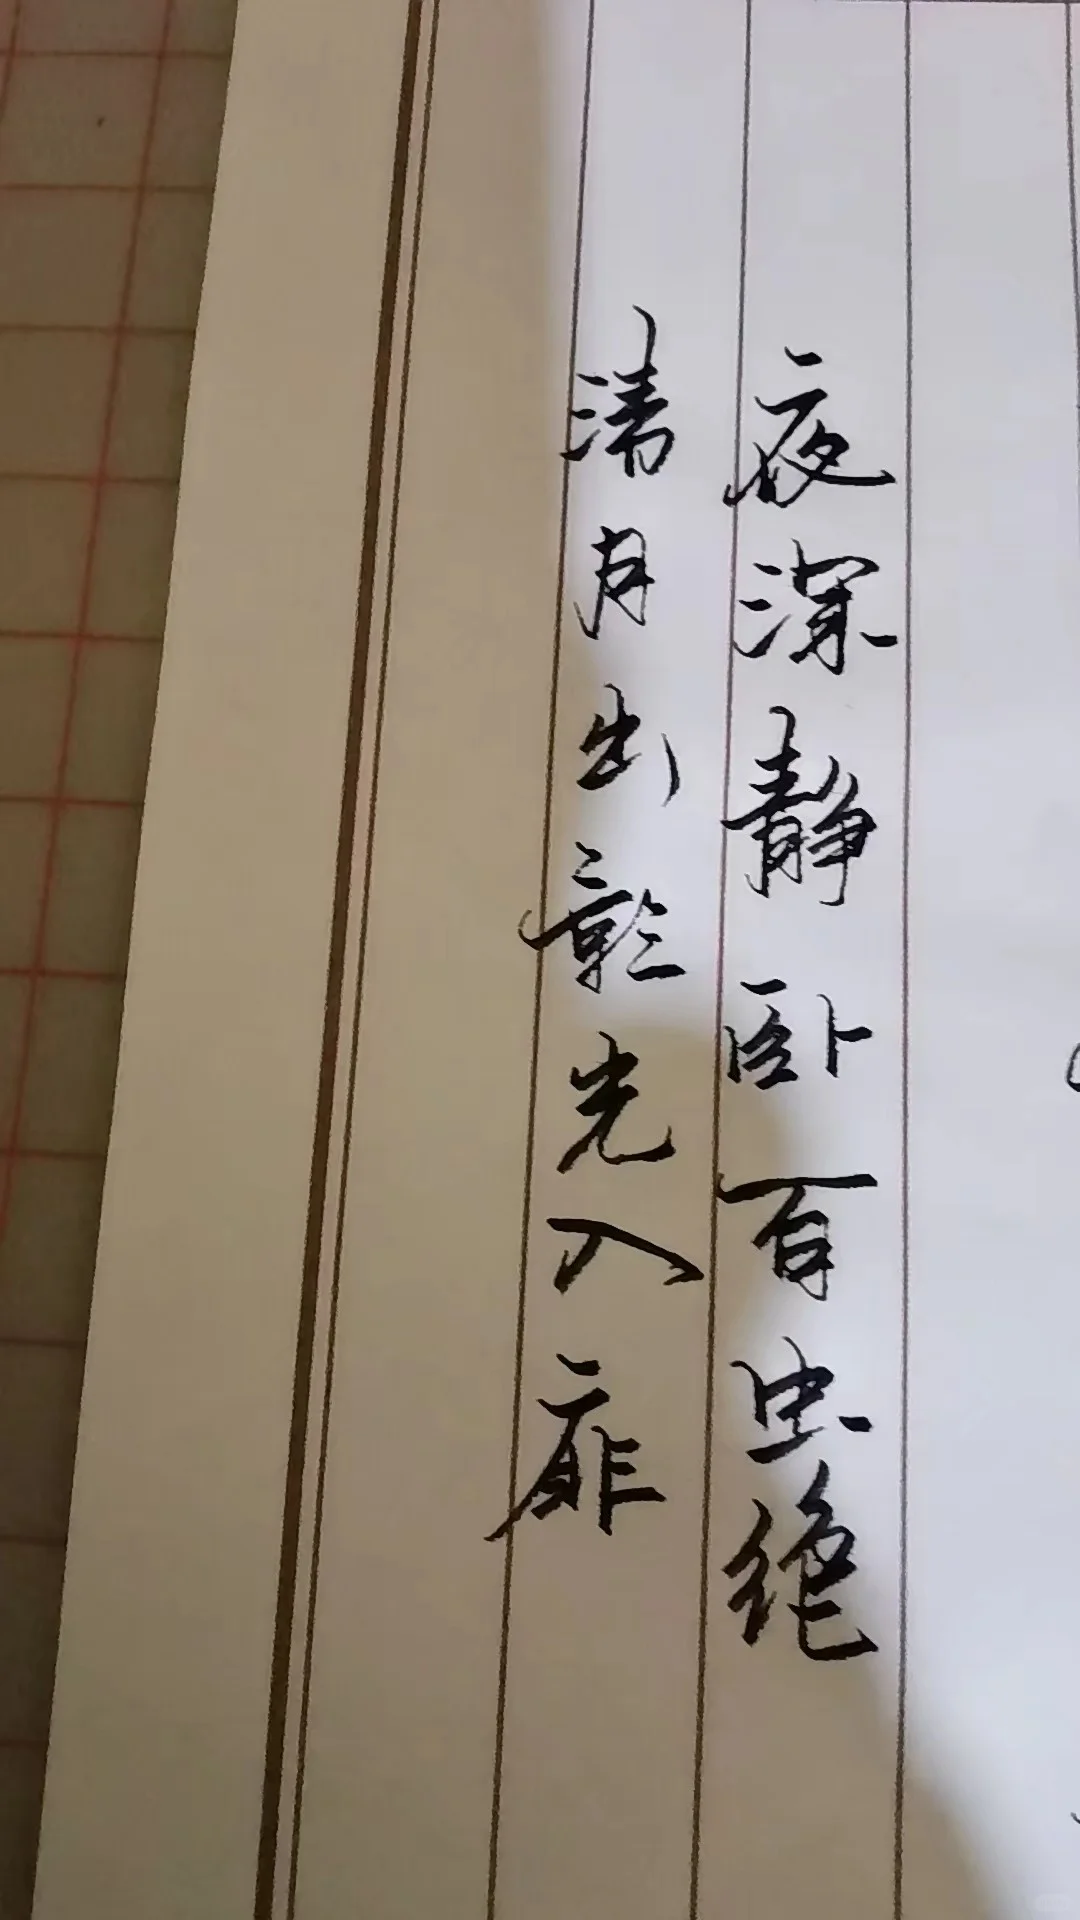 夜深静卧百虫绝
清月出光入扉